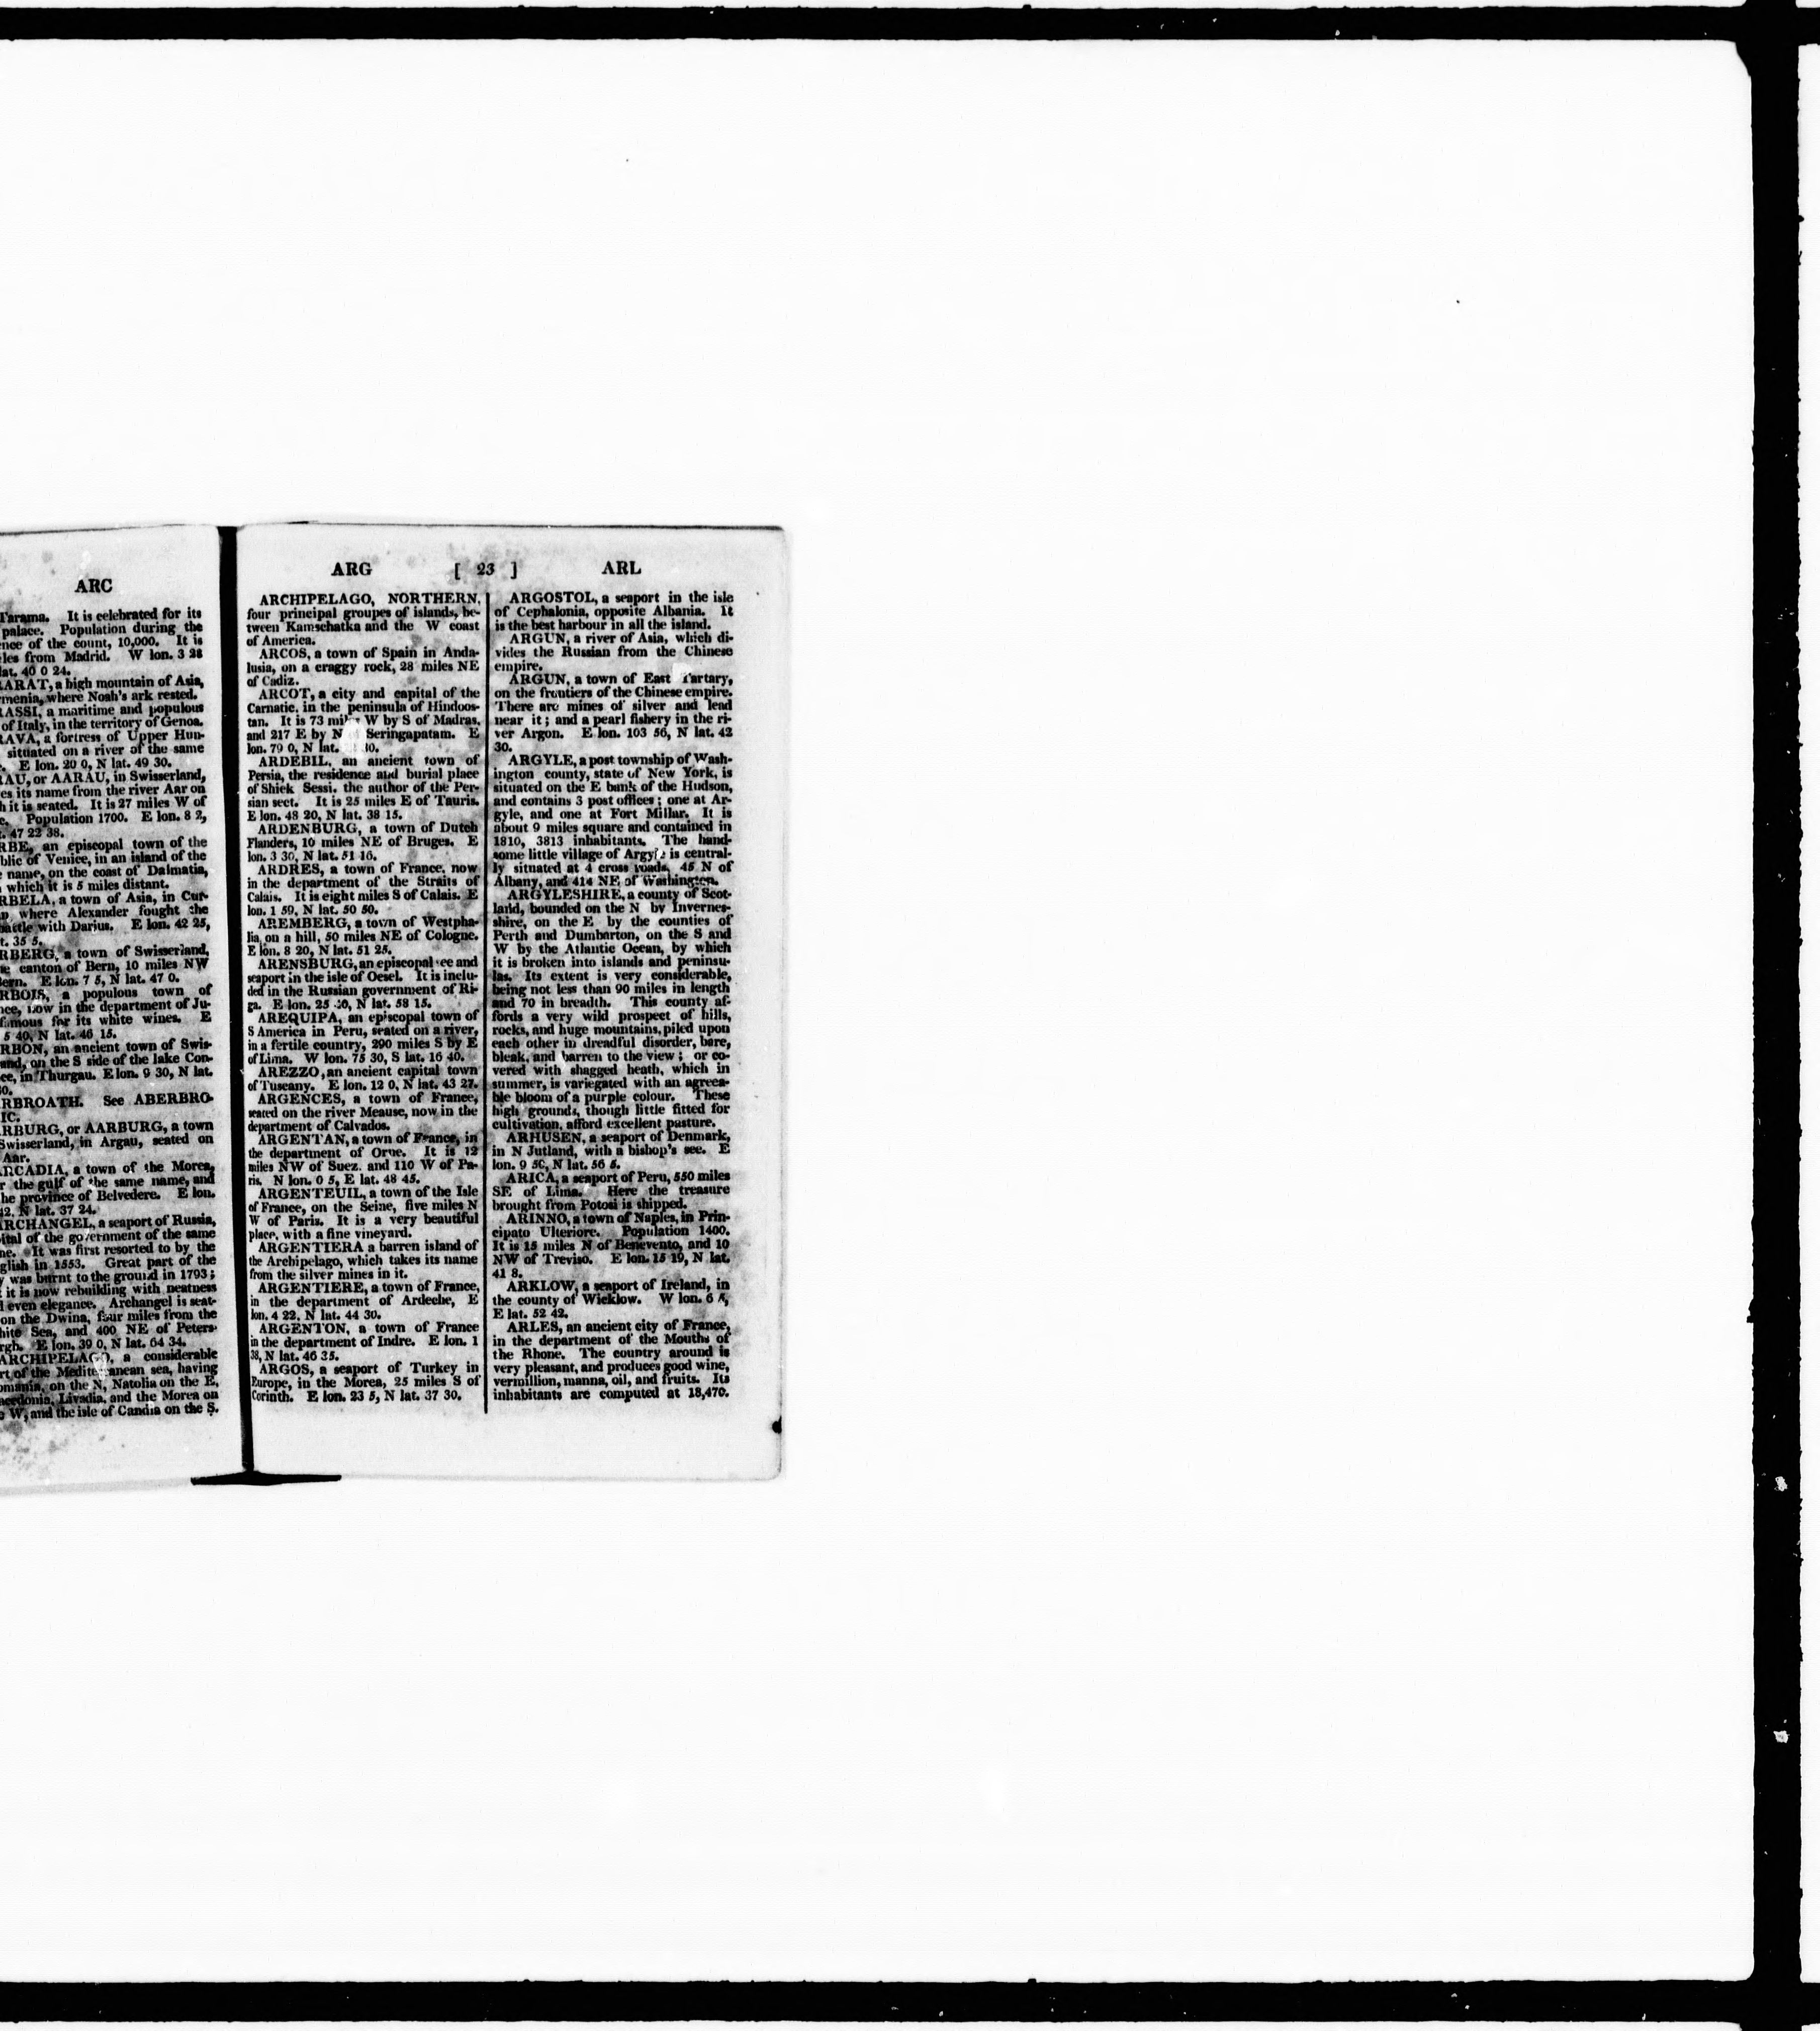 ARC
Tarama. It is celebrated for its
palace. Population during the
nce of the count, 10,000. It is
les from Madrid. W lon. 3 28
lat. 40 0 24.
ARAT, a high mountain of Asia,
menia, where Noah's ark rested.
ASSI, a maritime and populous
of Italy, in the territory of Genoa.
AVA, a fortress of Upper Hun-
situated on a river of the same
. E lon. 20 0, N lat. 49 30.
AU, or AARAU, in Swisserland,
es its name from the river Aar on
h it is seated. It is 27 miles W of
e. Population 1700. E lon. 8 2,
. 47 22 38.
RBE, an episcopal town of the
blic of Venice, in an island of the
name, on the coast of Dalmatia,
which it is 5 miles distant.
RBELA, a town of Asia, in Cur-
n, where Alexander fought the
battle with Darius. E lon. 42 25,
t. 35 5.
RBERG, a town of Swisserland,
e canton of Bern, 10 miles NW
ern. E lon. 7 5, N lat. 47 0.
RBOIS, a populous town of
nce, now in the department of Ju-
famous for its white wines. E
5 40, N lat. 46 15.
RBON, an ancient town of Swis-
and, on the S side of the lake Con-
ce, in Thurgau. E lon. 9 30, N lat.
0.
RBROATH. See ABERBRO-
IC.
RBURG, or AARBURG, a town
Swisserland, in Argau, seated on
Aar.
ARCADIA, a town of the Morea,
r the gulf of the same name, and
he province of Belvedere. E lon.
42, N lat. 37 24.
ARCHANGEL, a seaport of Russia,
ital of the government of the same
ne. It was first resorted to by the
glish in 1553. Great part of the
y was burnt to the ground in 1793;
it is now rebuilding with neatness
l even elegance. Archangel is seat-
on the Dwina, four miles from the
hite Sea, and 400 NE of Peters-
rgh. E lon. 39 0, N lat. 64 34.
ARCHIPELAGO, a considerable
rt of the Mediterranean sea, having
omania, on the N, Natolia on the E,
acedonia, Livadia, and the Morea on
e W, and the isle of Candia on the S.
ARG [ 23 ] ARL
ARCHIPELAGO, NORTHERN,
four principal groupes of islands, be-
tween Kamschatka and the W coast
of America.
ARCOS, a town of Spain in Anda-
lusia, on a craggy rock, 28 miles NE
of Cadiz.
ARCOT, a city and capital of the
Carnatic, in the peninsula of Hindoos-
tan. It is 73 miles W by S of Madras,
and 217 E by N Seringapatam. E
lon. 79 0, N lat. 30.
ARDEBIL, an ancient town of
Persia, the residence and burial place
of Shiek Sessi, the author of the Per-
sian sect. It is 25 miles E of Tauris.
E lon. 48 20, N lat. 38 15.
ARDENBURG, a town of Dutch
Flanders, 10 miles NE of Bruges. E
lon. 3 30, N lat. 51 16.
ARDRES, a town of France, now
in the department of the Straits of
Calais. It is eight miles S of Calais. E
lon. 1 59, N lat. 50 50.
AREMBERG, a town of Westpha-
lia, on a hill, 50 miles NE of Cologne.
E lon. 8 20, N lat. 51 25.
ARENSBURG, an episcopal see and
seaport in the isle of Oesel. It is inclu-
ded in the Russian government of Ri-
ga. E lon. 25 40, N lat. 58 15.
AREQUIPA, an episcopal town of
S America in Peru, seated on a river,
in a fertile country, 290 miles S by E
of Lima. W lon. 75 30, S lat. 16 40.
AREZZO, an ancient capital town
of Tuscany. E lon. 12 0, N lat. 43 27.
ARGENCES, a town of France,
seated on the river Meause, now in the
department of Calvados.
ARGENTAN, a town of France, in
the department of Orne. It is 12
miles NW of Suez, and 110 W of Pa-
ris. N lon. 0 5, E lat. 48 45.
ARGENTEUIL, a town of the Isle
of France, on the Seine, five miles N
W of Paris. It is a very beautiful
place, with a fine vineyard.
ARGENTIERA a barren island of
the Archipelago, which takes its name
from the silver mines in it.
ARGENTIERE, a town of France,
in the department of Ardeche, E
lon. 4 22, N lat. 44 30.
ARGENTON, a town of France
in the department of Indre. E lon. 1
38, N lat. 46 35.
ARGOS, a seaport of Turkey in
Europe, in the Morea, 25 miles S of
Corinth. E lon. 23 5, N lat. 37 30.
ARGOSTOL, a seaport in the isle
of Cephalonia, opposite Albania. It
is the best harbour in all the island.
ARGUN, a river of Asia, which di-
vides the Russian from the Chinese
empire.
ARGUN, a town of East Tartary,
on the frontiers of the Chinese empire.
There are mines of silver and lead
near it; and a pearl fishery in the ri-
ver Argon. E lon. 103 56, N lat. 42
30.
ARGYLE, a post township of Wash-
ington county, state of New York, is
situated on the E bank of the Hudson,
and contains 3 post offices; one at Ar-
gyle, and one at Fort Millar. It is
about 9 miles square and contained in
1810, 3813 inhabitants. The hand-
some little village of Argyle is central-
ly situated at 4 cross roads, 45 N of
Albany, and 414 NE of Washington.
ARGYLESHIRE, a county of Scot-
land, bounded on the N by Inverness-
shire, on the E by the counties of
Perth and Dumbarton, on the S and
W by the Atlantic Ocean, by which
it is broken into islands and peninsu-
las. Its extent is very considerable,
being not less than 90 miles in length
and 70 in breadth. This county af-
fords a very wild prospect of hills,
rocks, and huge mountains, piled upon
each other in dreadful disorder, bare,
bleak, and barren to the view; or co-
vered with shagged heath, which in
summer, is variegated with an agreea-
ble bloom of a purple colour. These
high grounds, though little fitted for
cultivation, afford excellent pasture.
ARHUSEN, a seaport of Denmark,
in N Jutland, with a bishop's see. E
lon. 9 50, N lat. 56 5.
ARICA, a seaport of Peru, 550 miles
SE of Lima. Here the treasure
brought from Potosi is shipped.
ARINNO, a town of Naples, in Prin-
cipato Ulteriore. Population 1400.
It is 15 miles N of Benevento, and 10
NW of Treviso. E lon. 15 19, N lat.
41 8.
ARKLOW, a seaport of Ireland, in
the county of Wicklow. W lon. 6
E lat. 52 42.
ARLES, an ancient city of France,
in the department of the Mouths of
the Rhone. The country around is
very pleasant, and produces good wine,
vermillion, manna, oil, and fruits. Its
inhabitants are computed at 18,470.